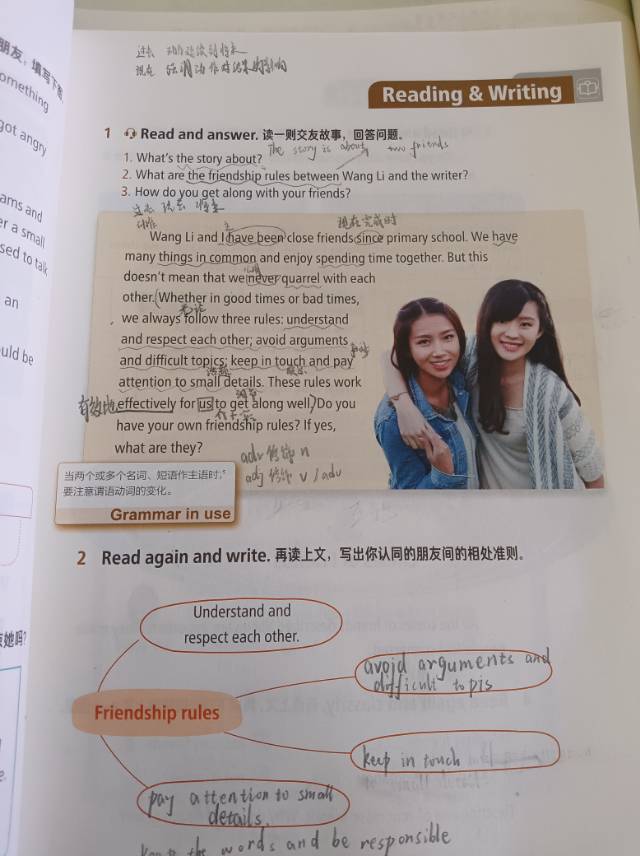 朋友，填写下
omething
got angry
ams and
er a small
sed to talk
an
uld be
她吗？
现在
Reading & Writing
1 Read and answer. 读一则交友故事，回答问题。
The story is about two friends
1. What's the story about?
2. What are the friendship rules between Wang Li and the writer?
3. How do you get along with your friends?
现在完成时
Wang Li and I have been close friends since primary school. We have
many things in common and enjoy spending time together. But this
doesn't mean that we never quarrel with each
other. Whether in good times or bad times,
无论
we always follow three rules: understand
and respect each other; avoid arguments
and difficult topics; keep in touch and pay
话题
attention to small details. These rules work
有效地
effectively for us to get along well. Do you
have your own friendship rules? If yes,
what are they?
adv 修饰 n
adj 修饰 v / adv
当两个或多个名词、短语作主语时，
要注意谓语动词的变化。
Grammar in use
2 Read again and write. 再读上文，写出你认同的朋友间的相处准则。
Understand and
respect each other.
avoid arguments and
difficult topis
Friendship rules
keep in touch
pay attention to small
details.
the words and be responsible